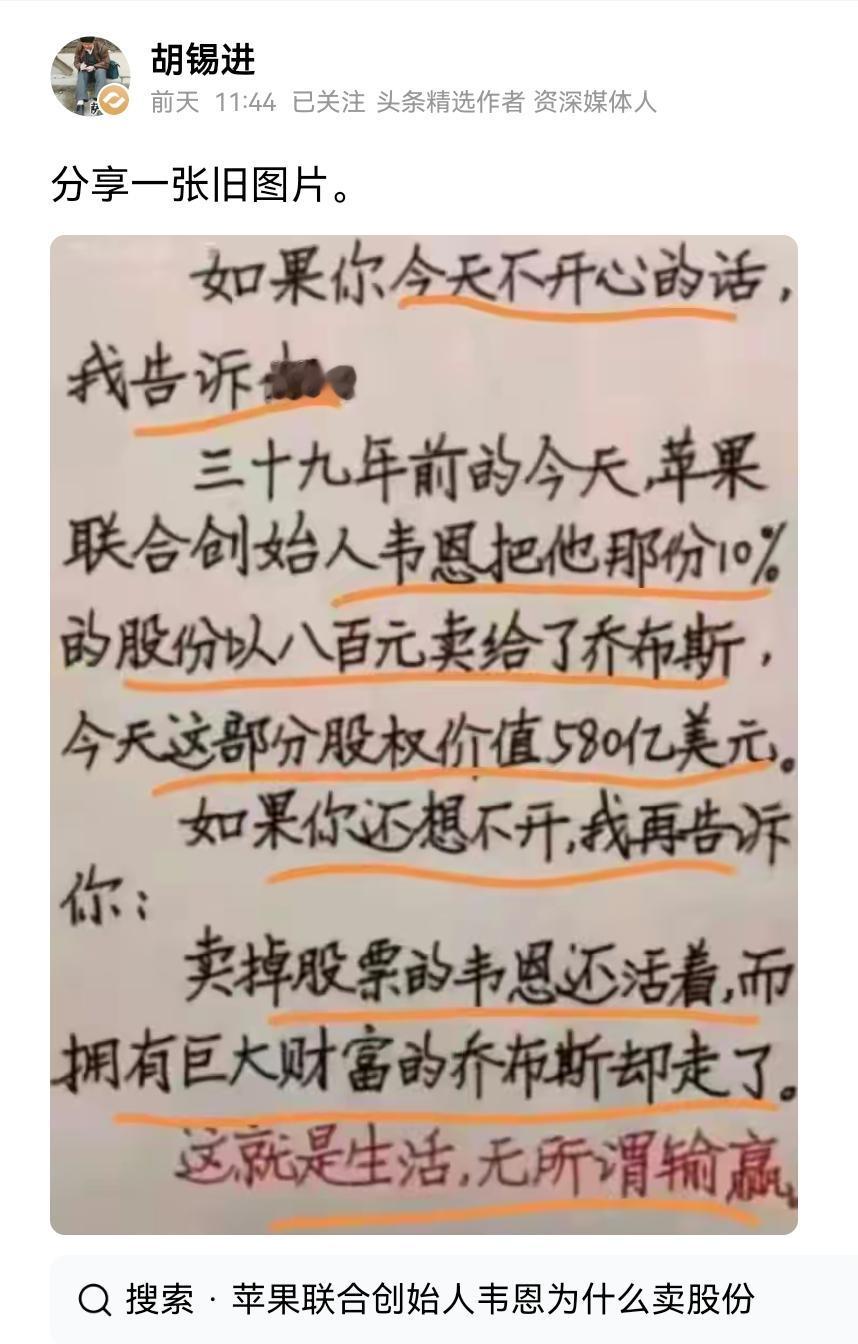 胡锡进
前天 11:44 已关注 头条精选作者 资深媒体人
分享一张旧图片。
如果你今天不开心的话，
我告诉
三十九年前的今天，苹果
联合创始人韦恩把他那份10%
的股份以八百元卖给了乔布斯，
今天这部分股权价值580亿美元。
如果你还想不开，我再告诉
你：
卖掉股票的韦恩还活着，而
拥有巨大财富的乔布斯却走了。
这就是生活，无所谓输赢。
搜索 · 苹果联合创始人韦恩为什么卖股份